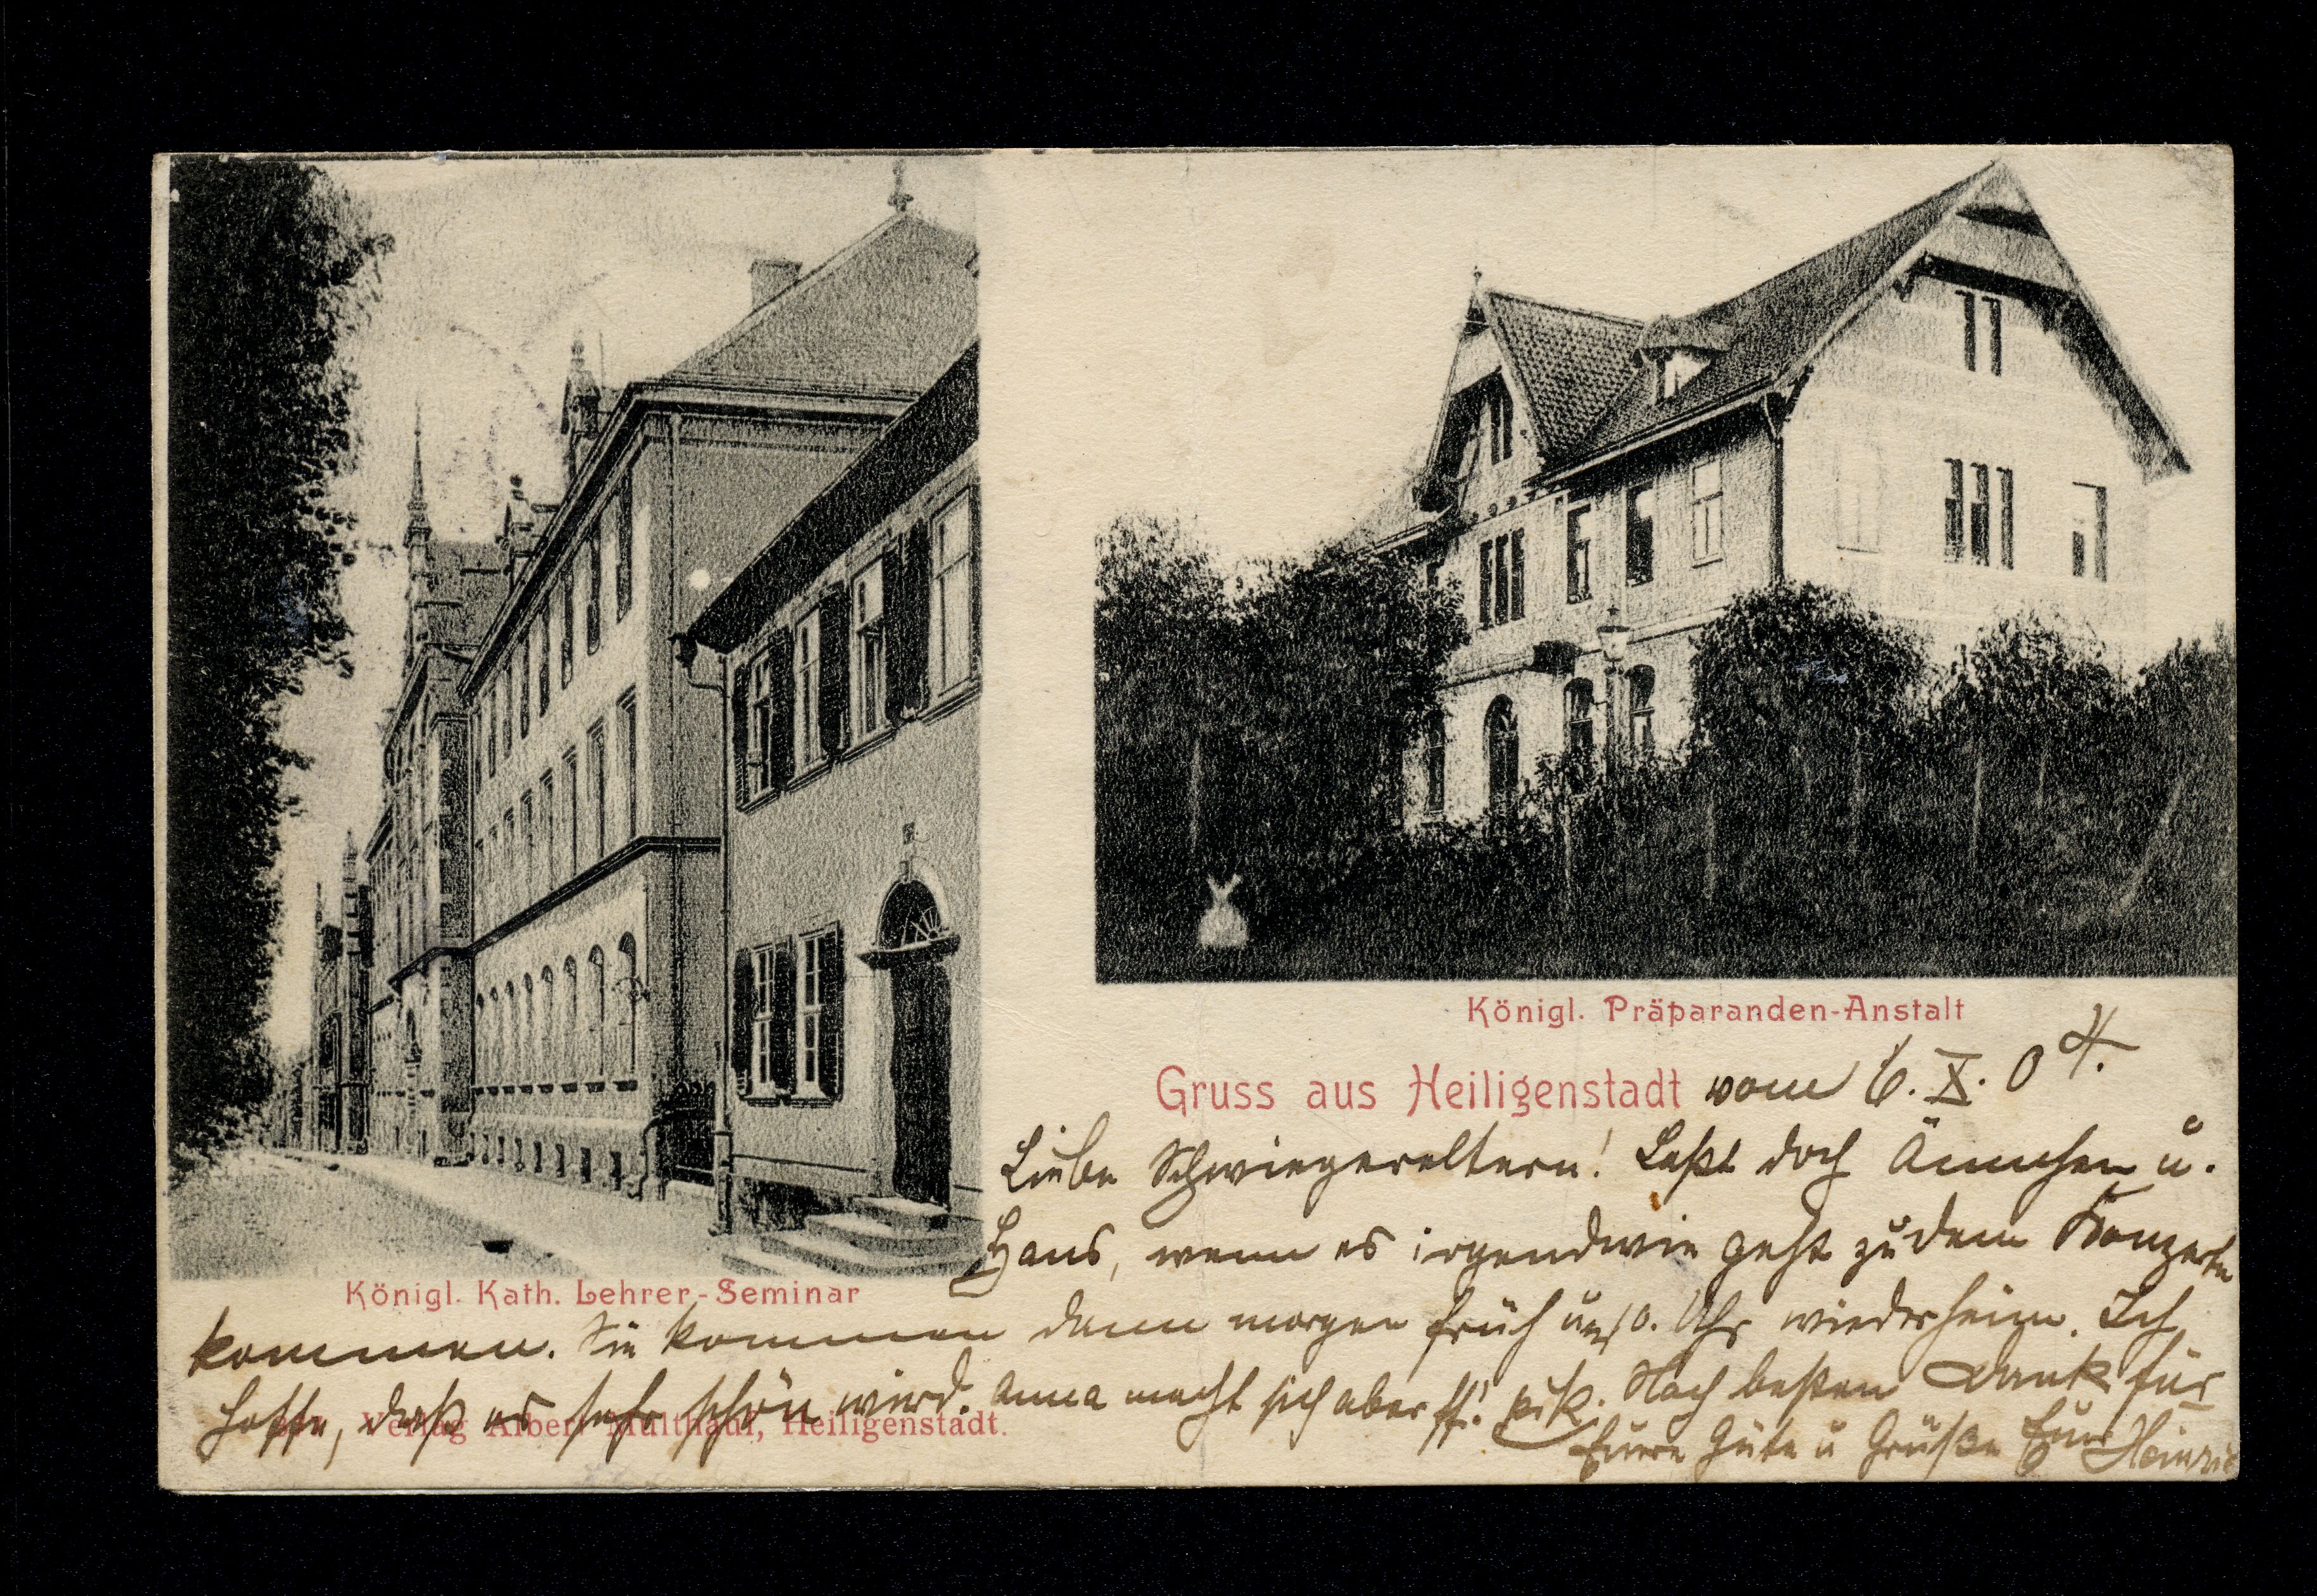 Königl. Präparanden-Anstalt
Gruss aus Heiligenstadt vom 6. X. 04.
Liebe Schwiegereltern! Laßt doch Ännchen u.
Hans, wenn es irgendwie geht zu dem Konzerte
Königl. Kath. Lehrer-Seminar
kommen. Sie kommen dann morgen früh um 10. Uhr wieder heim. Ich
hoffe, daß es sehr schön wird. Anna macht sich aber ff! Noch besten Dank für
Verlag Albert Multhauf, Heiligenstadt.
Eurre Güte u Grüße Euer Heinric